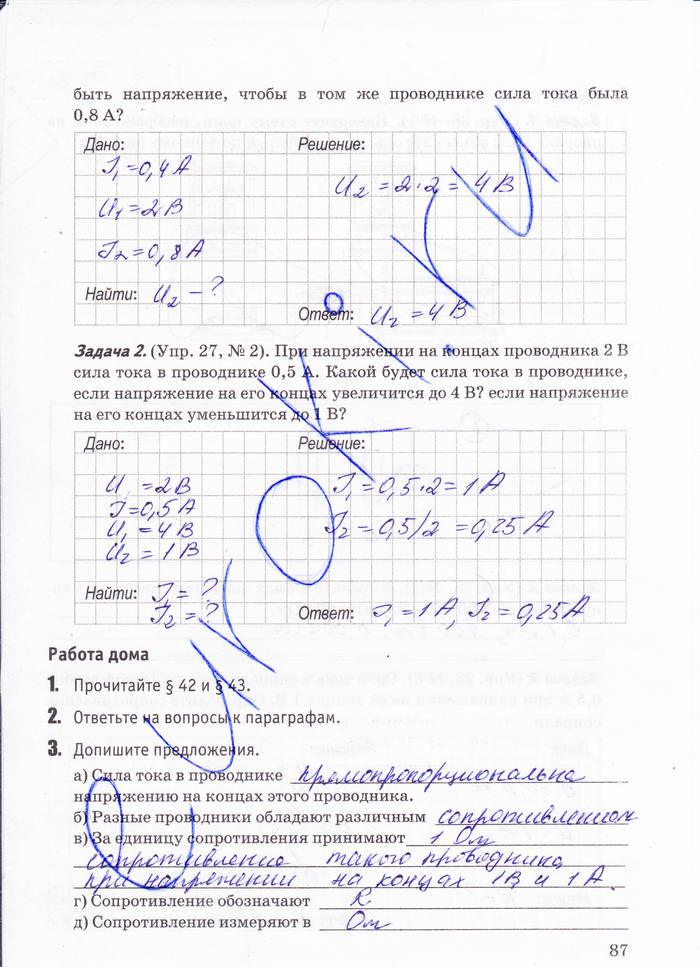 быть напряжение, чтобы в том же проводнике сила тока была
0,8 А?
Дано: Решение:
I₁=0,4 А
U₂ = 2·2 = 4 В
U₁=2 В
I₂=0,8 А
Найти: U₂ – ?
Ответ: U₂ = 4 В
Задача 2. (Упр. 27, № 2). При напряжении на концах проводника 2 В
сила тока в проводнике 0,5 А. Какой будет сила тока в проводнике,
если напряжение на его концах увеличится до 4 В? если напряжение
на его концах уменьшится до 1 В?
Дано: Решение:
U =2 В I₁=0,5·2=1 А
I=0,5 А
U₁ =4 В I₂=0,5/2 =0,25 А
U₂ = 1 В
Найти: I₁=?
I₂=? Ответ: I₁=1 А, I₂=0,25 А
Работа дома
1. Прочитайте § 42 и § 43.
2. Ответьте на вопросы к параграфам.
3. Допишите предложения.
а) Сила тока в проводнике прямопропорциональна
напряжению на концах этого проводника.
б) Разные проводники обладают различным сопротивлением
в) За единицу сопротивления принимают 1 Ом
сопротивление такого проводника
при напряжении на концах 1В и 1 А.
г) Сопротивление обозначают R
д) Сопротивление измеряют в Ом
87
р.уroки.ru